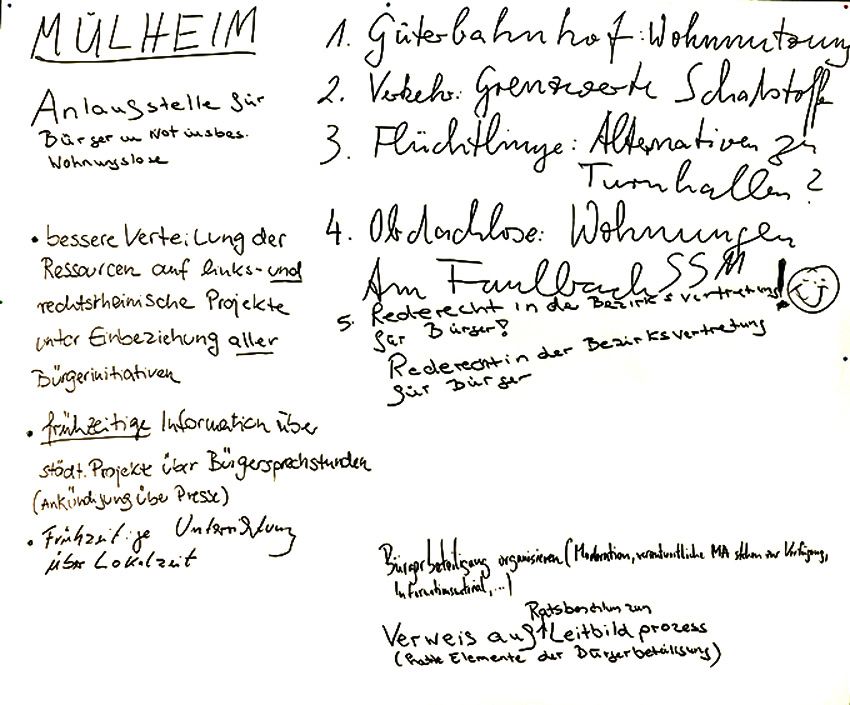 MÜLHEIM
Anlaufstelle für
Bürger in Not insbes.
Wohnungslose
• bessere Verteilung der
Ressourcen auf links- und
rechtsrheinische Projekte
unter Einbeziehung aller
Bürgerinitiativen
• frühzeitige Information über
städt. Projekte über Bürgersprechstunden
(Ankündigung über Presse)
• Frühzeitige Unterrichtung
über Lokalzeit
1. Güterbahnhof: Wohnnutzung
2. Verkehr: Grenzwerte Schadstoffe
3. Flüchtlinge: Alternativen zu
Turnhallen?
4. Obdachlose: Wohnungen
Am Faulbach SSM!
5. Rederecht in der Bezirksvertretung
für Bürger!
Rederecht in der Bezirksvertretung
für Bürger
Bürgerbeteiligung organisieren (Moderation, verantwortliche MA stehen zur Verfügung,
Informationsmaterial, ...)
Ratsbeschluss zum
Verweis auf Leitbildprozess
(hatte Elemente der Bürgerbeteiligung)